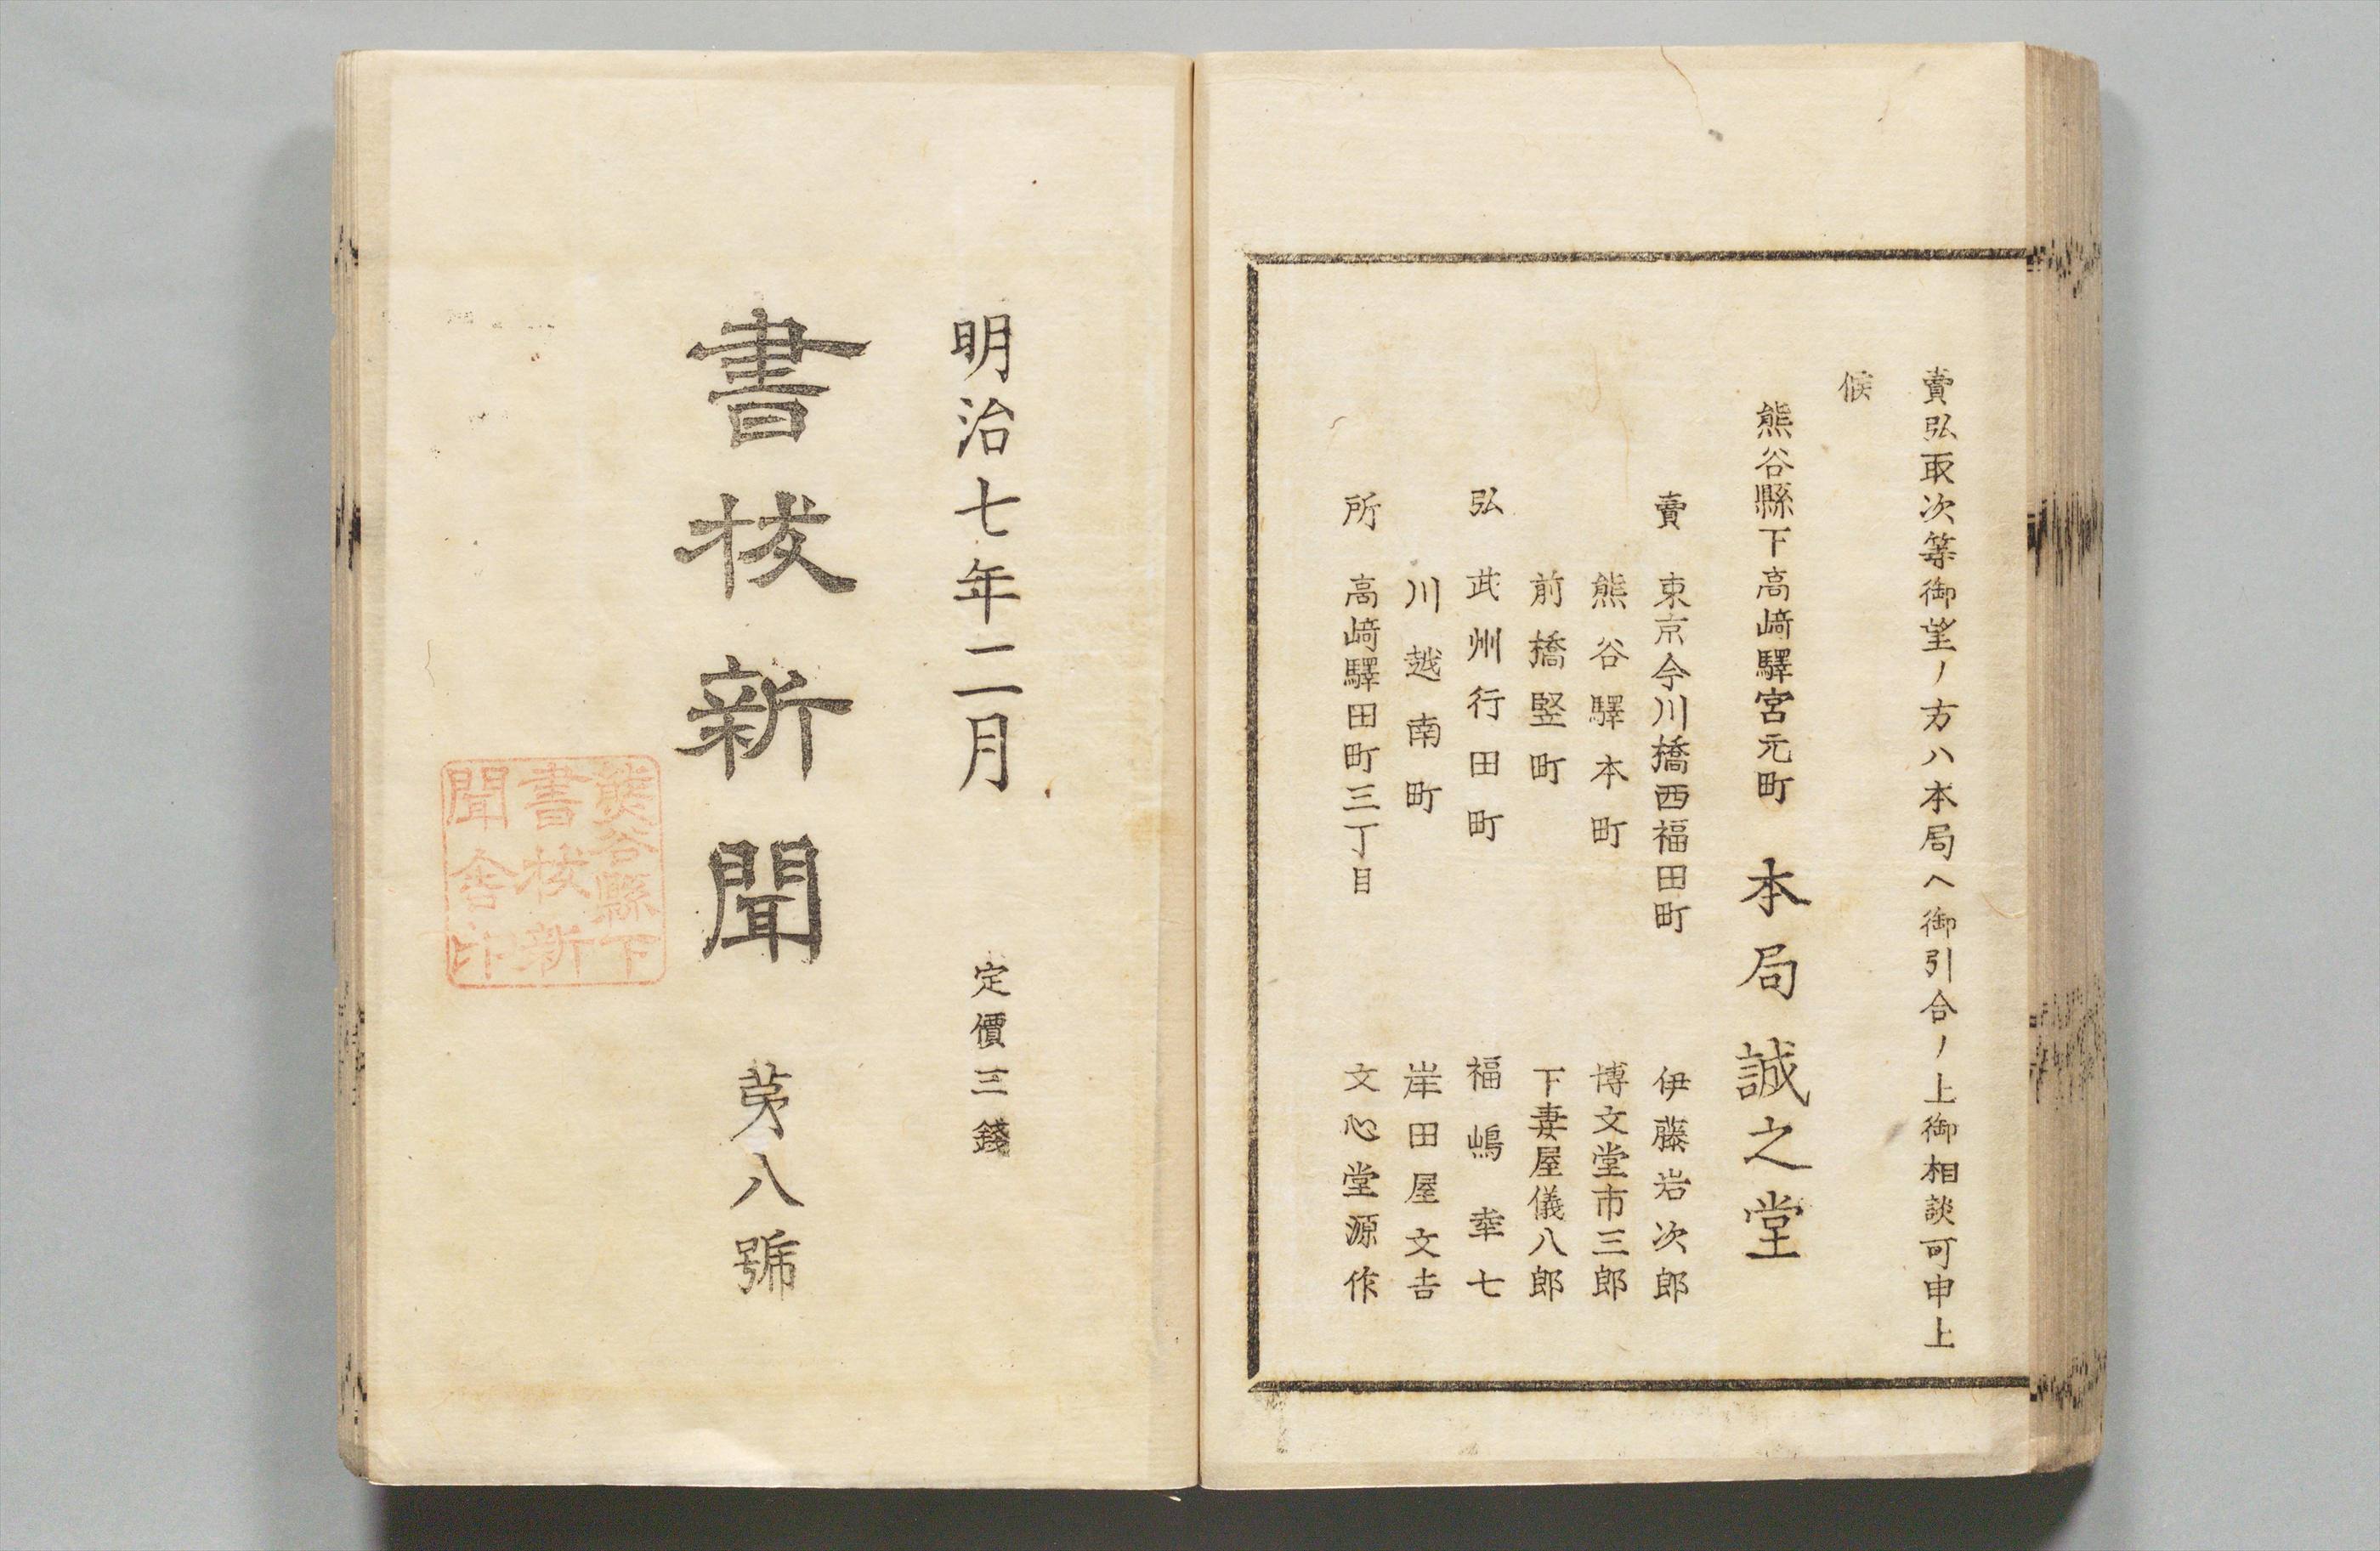 賣弘取次等御望ノ方ハ本局ヘ御引合ノ上御相談可申上
候
熊谷縣下高﨑驛宮元町 本局 誠之堂
賣 東京今川橋西福田町 伊藤岩次郎
熊谷驛本町 博文堂市三郎
前橋竪町 下妻屋儀八郎
弘 武州行田町 福嶋幸七
川越南町 岸田屋文吉
所 高﨑驛田町三丁目 文心堂源作
明治七年二月 定價三錢
書抜新聞 苐八號
熊谷縣下
書抜新
聞舎印